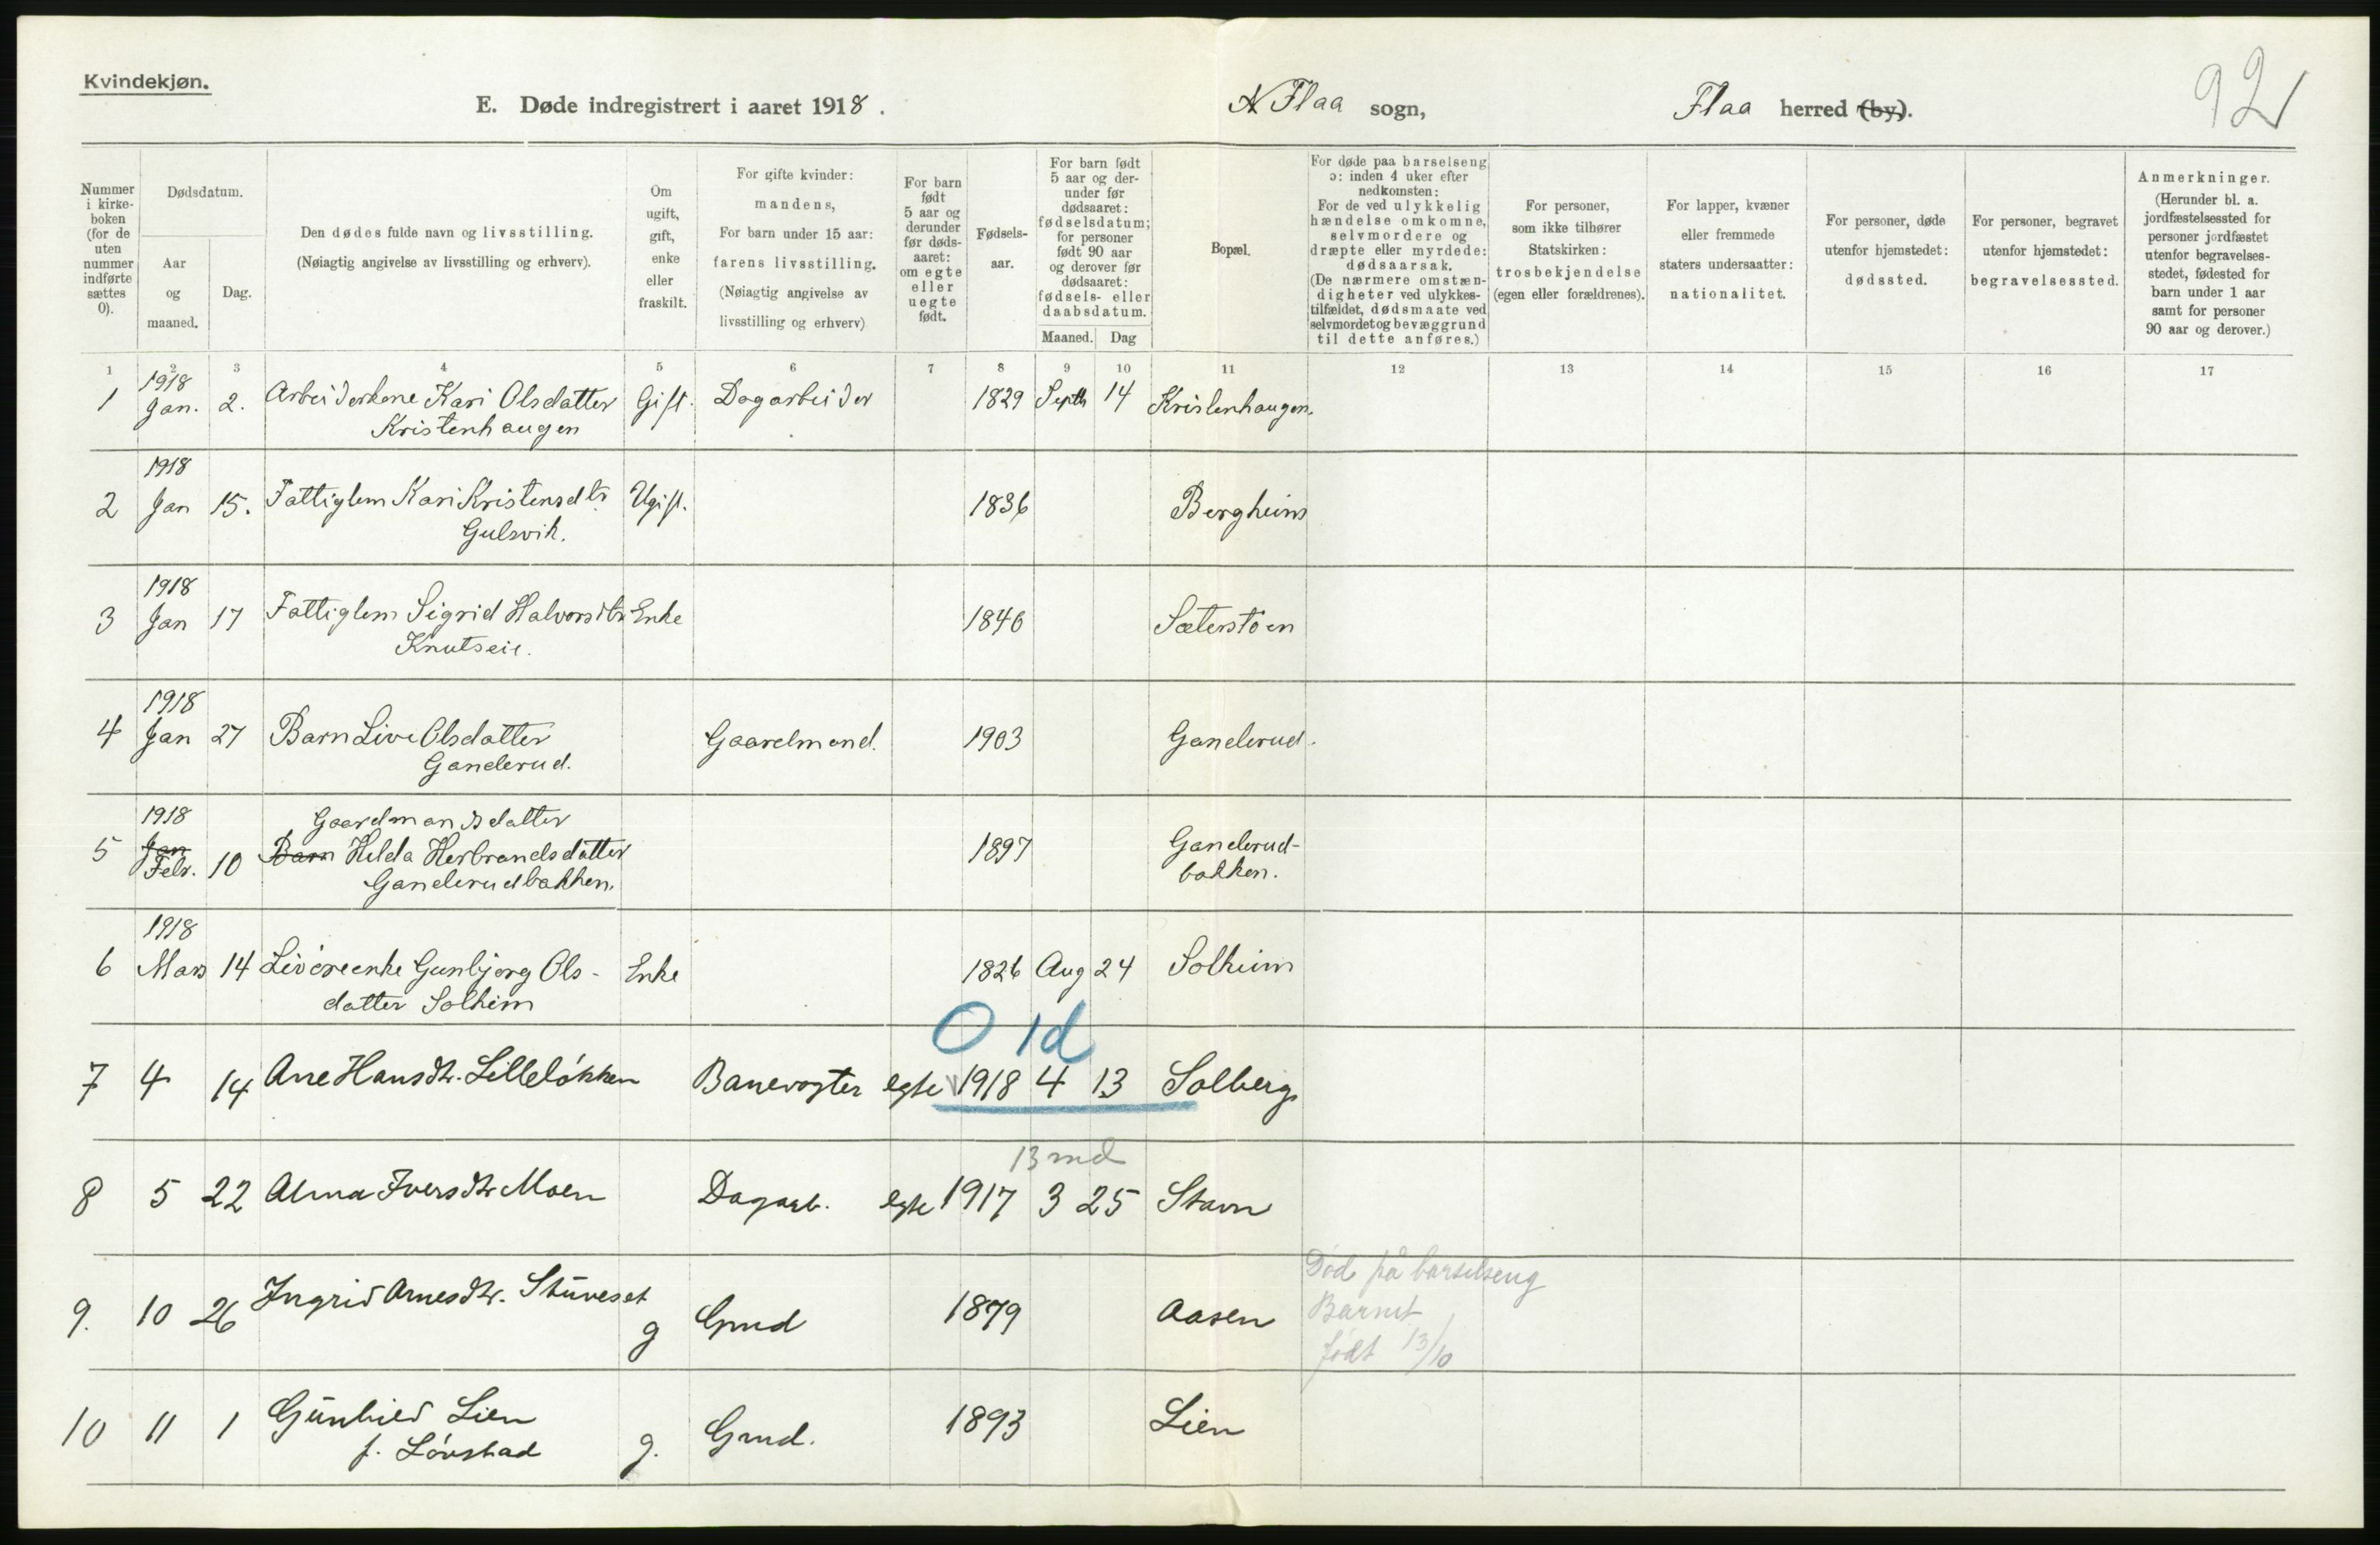 Kvindekjøn.
92
E. Døde indregistrert i aaret 1918. N Flaa sogn, Flaa herred (by).
Nummer i kirke-boken (for de uten nummer indførte sættes 0).
Dødsdatum.
Aar og maaned.
Dag.
Den dødes fulde navn og livsstilling.
(Nøiagtig angivelse av livsstilling og erhverv).
Om ugift, gift, enke eller fraskilt.
For gifte kvinder: mandens,
For barn under 15 aar: farens livsstilling.
(Nøiagtig angivelse av livsstilling og erhverv)
For barn født 5 aar og derunder før døds-aaret: om egte eller uegte født.
Fødsels-aar.
For barn født 5 aar og der-under før dødsaaret: fødselsdatum; for personer født 90 aar og derover før dødsaaret: fødsels- eller daabsdatum.
Maaned. Dag
Bopæl.
For døde paa barselseng ɔ: inden 4 uker efter nedkomsten:
For de ved ulykkelig hændelse omkomne, selvmordere og dræpte eller myrdede: dødsaarsak.
(De nærmere omstæn-digheter ved ulykkes-tilfældet, dødsmaate ved selvmordet og bevæggrund til dette anføres.)
For personer, som ikke tilhører Statskirken: trosbekjendelse (egen eller forældrenes).
For lapper, kvæner eller fremmede staters undersaatter: nationalitet.
For personer, døde utenfor hjemstedet: dødssted.
For personer, begravet utenfor hjemstedet: begravelsessted.
Anmerkninger.
(Herunder bl. a. jordfæstelsessted for personer jordfæstet utenfor begravelses-stedet, fødested for barn under 1 aar samt for personer 90 aar og derover.)
1 2 3 4 5 6 7 8 9 10 11 12 13 14 15 16 17
1918
1 Jan. 2. Arbeiderkone Kari Olsdatter Gift. Dagarbeider 1829 Septb 14 Kristenhaugen.
Kristenhaugen
1918
2 Jan 15. Fattiglem Kari Kristensdtr Ugift. 1836 Bergheim
Gulsvik.
1918
3 Jan 17 Fattiglem Sigrid Halvorsdtr Enke 1846 Sæterstøen
Knutseie.
1918
4 Jan 27 Barn Live Olsdatter Gaardmand. 1903 Ganderud.
Ganderud.
1918 Gaardmandsdatter
5 Jan Febr. 10 Barn Helda Herbrandsdatter 1897 Ganderud-
Ganderudbakken. bakken.
1918
6 Mars 14 Livøreenke Gunbjørg Ols- Enke 1826 Aug 24 Solheim
datter Solheim
0 1d
7 4 14 Ane Hansdtr. Lilleløkken Banevogter egte 1918 4 13 Solberg
13 md
8 5 22 Alma Iversdtr Moen Dagarb. egte 1917 3 25 Stavn
9. 10 26 Ingrid Arnesdtr. Stuveset g Gmd 1879 Aasen
Død på barselseng
Barnet
født 13/10
10 11 1 Gunhild Lien g. Gmd. 1893 Lien
f. Løvstad